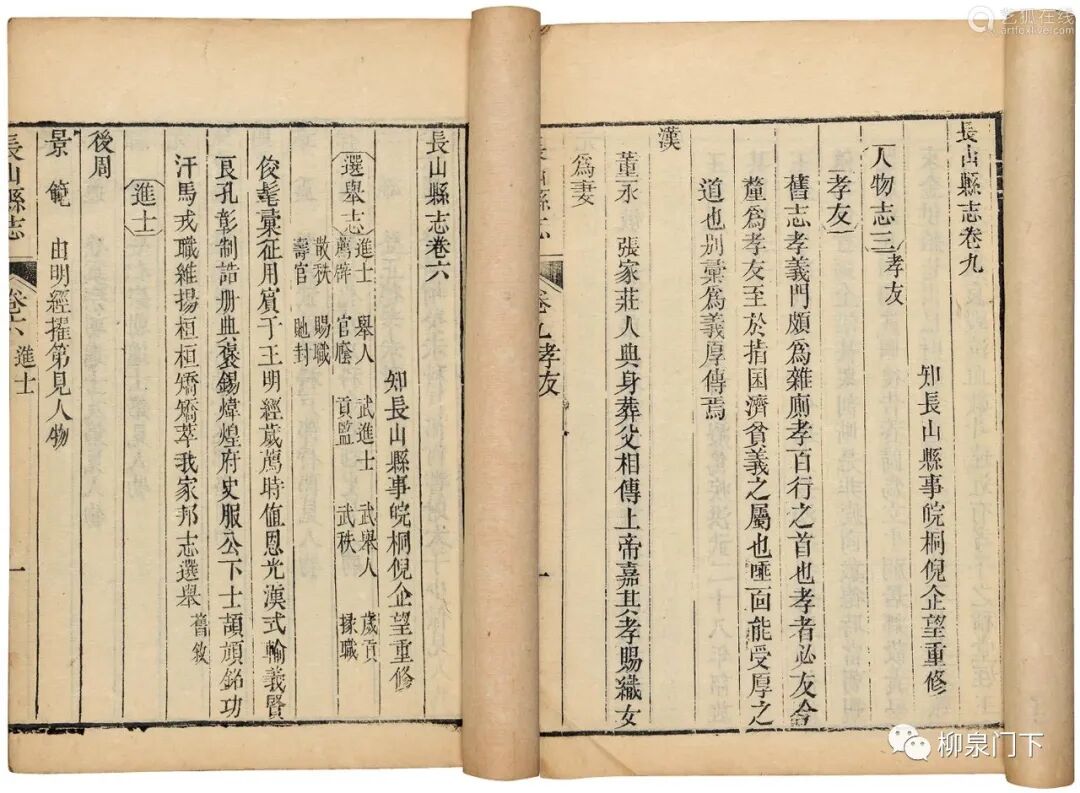 長山縣志卷九
知長山縣事皖桐倪企望重修
人物志三 孝友
孝友
舊志孝義門頗爲雜廁孝百行之首也孝者必友合
釐爲孝友至於指囷濟貧義之屬也匪面能受厚之
道也別彙爲義厚傳焉
漢
董永 張家莊人典身葬父相傳上帝嘉其孝賜織女
爲妻
長山縣志
卷九孝友
一
長山縣志卷六
知長山縣事皖桐倪企望重修
選舉志 進士 舉人 武進士 武舉人 歲貢
薦辟 官廕 貢監 武秩 掾職
散秩 賜職
壽官 貤封
俊髦彙征用賓于王明經歲薦時值恩光漢式輸義賢
良孔彰制誥册典褒錫煒煌府史服公下士頡頏銘功
汗馬戎職維揚桓桓矯矯萃我家邦志選舉 舊敘
進士
後周
景範 由明經擢第見人物
長山縣志
卷六 進士
一
艺狐在线
artfoxlive.com
柳泉门下